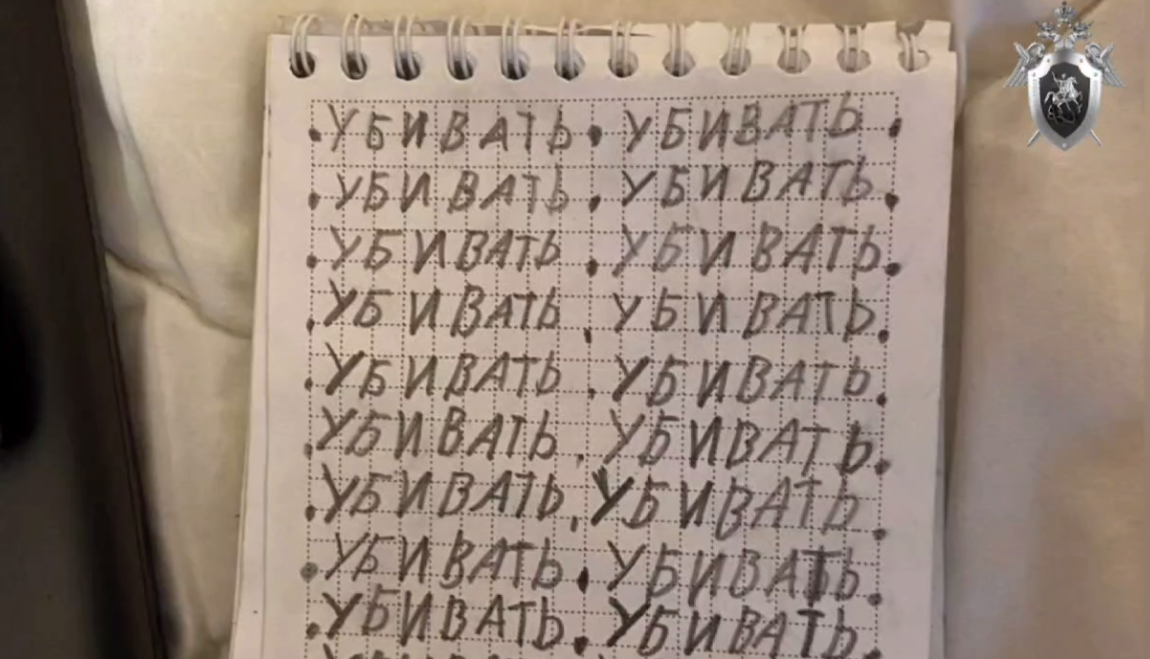 .УБИВАТЬ. УБИВАТЬ.
.УБИВАТЬ. УБИВАТЬ.
.УБИВАТЬ. УБИВАТЬ.
.УБИВАТЬ. УБИВАТЬ.
.УБИВАТЬ. УБИВАТЬ.
.УБИВАТЬ. УБИВАТЬ.
.УБИВАТЬ. УБИВАТЬ.
.УБИВАТЬ. УБИВАТЬ.
.УБИВАТЬ. УБИВАТЬ.